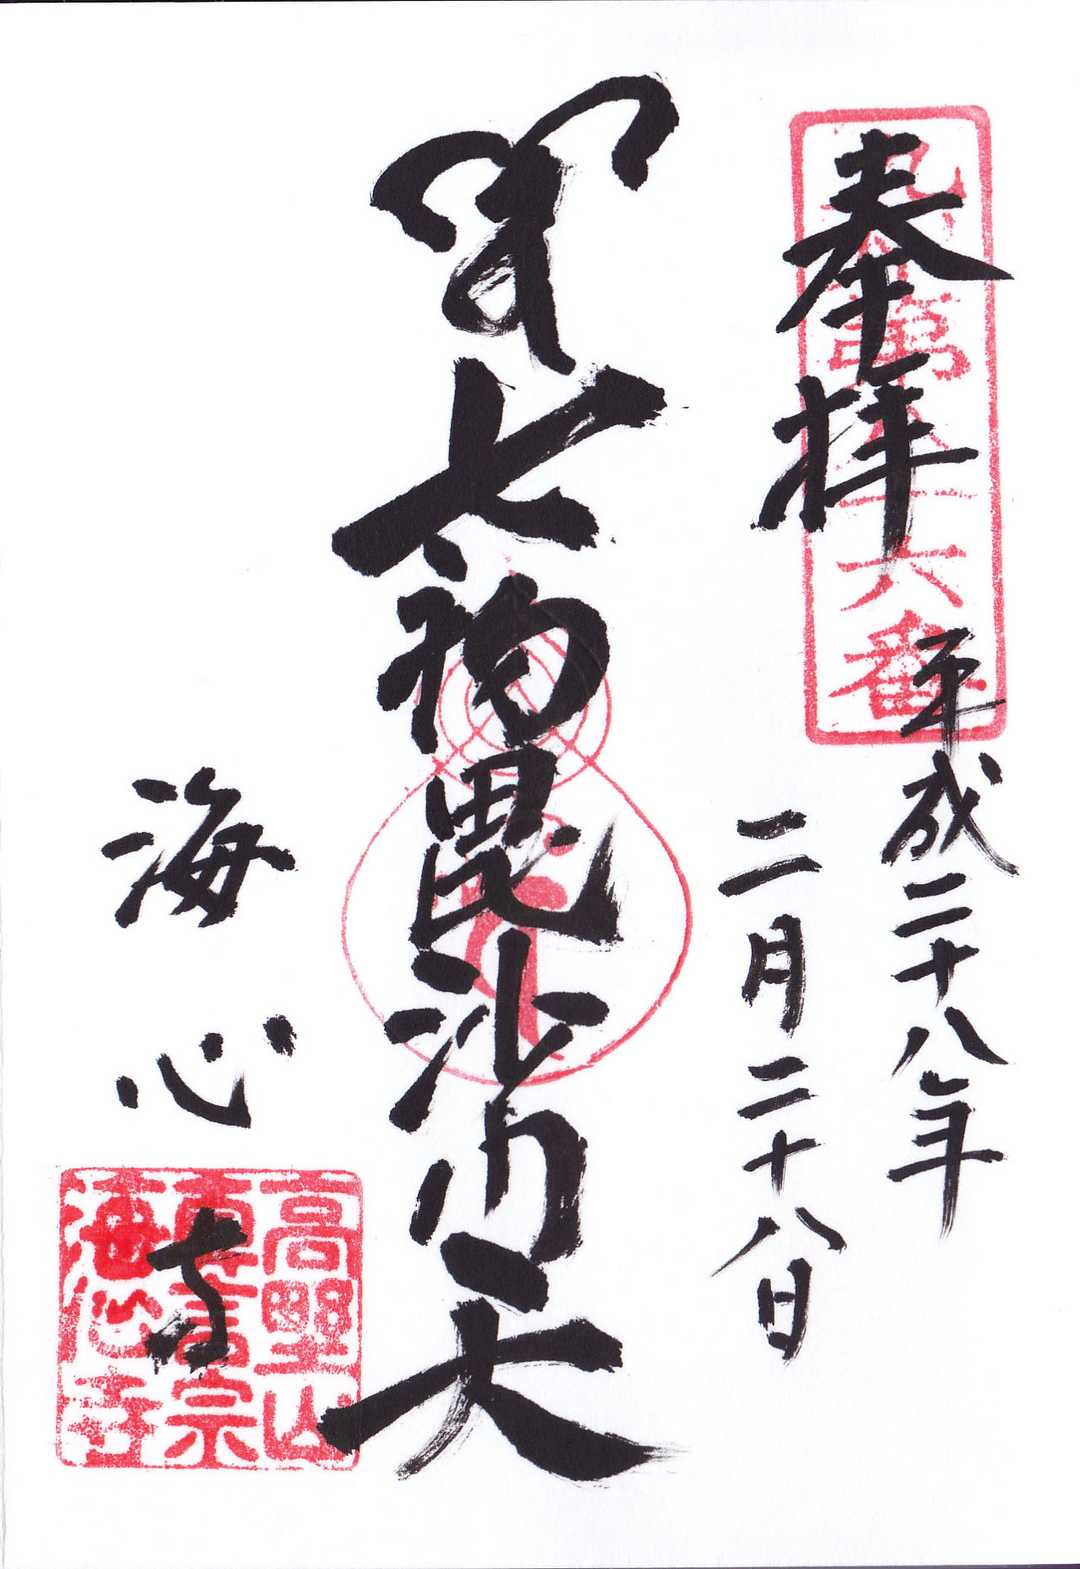 奉拝
九州第八十六番
平成二十八年
二月二十八日
毘沙門天
海心寺
高野山
真言宗
海心寺